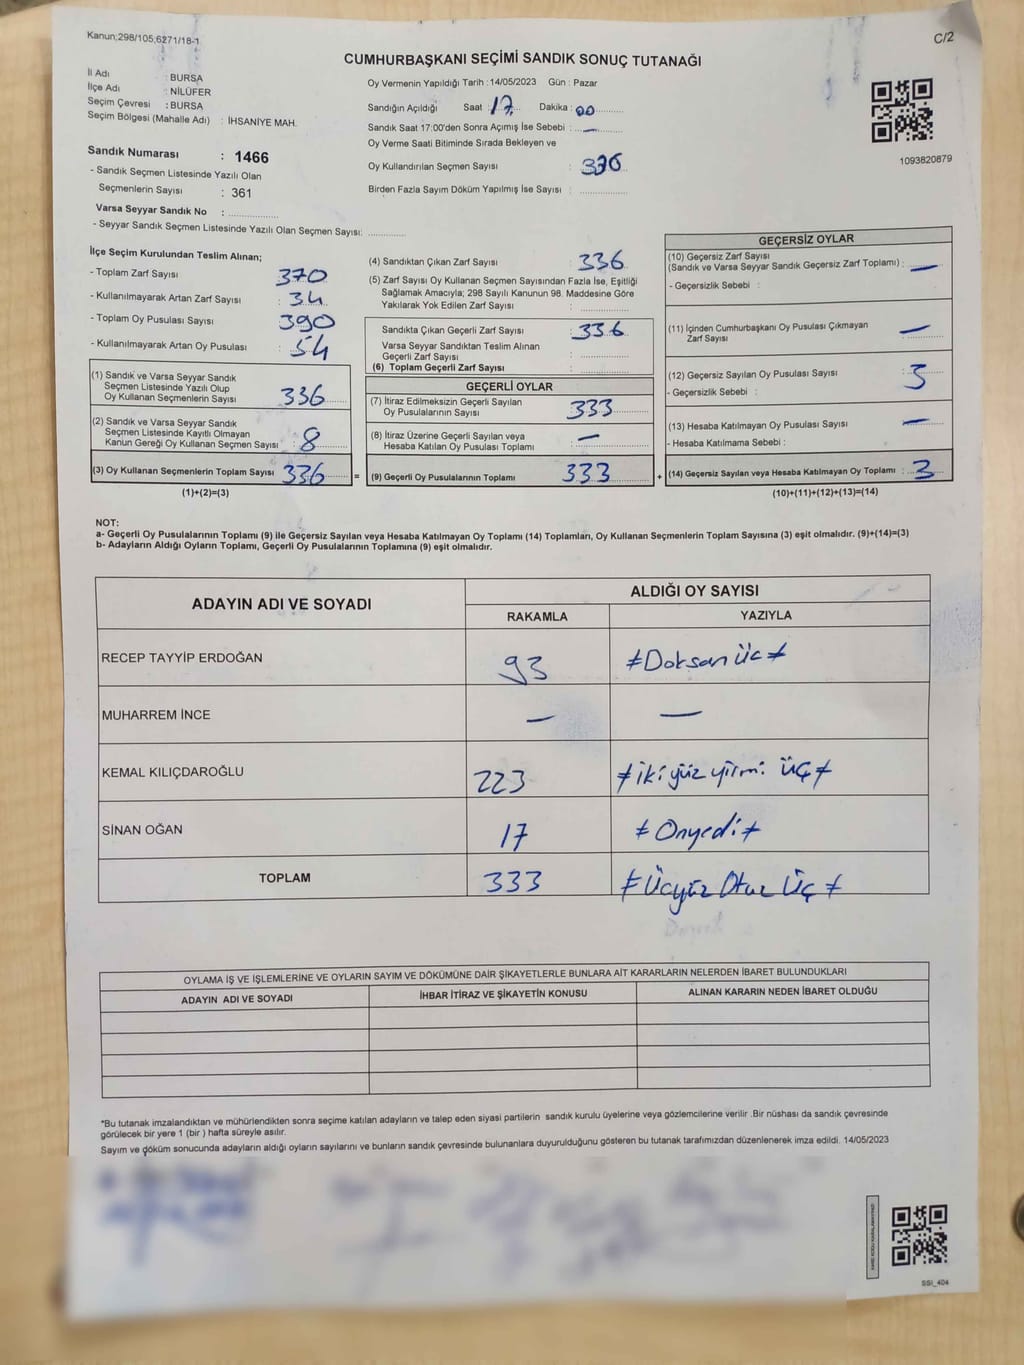 Kanun;298/105;6271/18-1
C/2
CUMHURBAŞKANI SEÇİMİ SANDIK SONUÇ TUTANAĞI
İl Adı : BURSA
İlçe Adı : NİLÜFER
Seçim Çevresi : BURSA
Seçim Bölgesi (Mahalle Adı) : İHSANİYE MAH.
Sandık Numarası : 1466
- Sandık Seçmen Listesinde Yazılı Olan
Seçmenlerin Sayısı : 361
Varsa Seyyar Sandık No :
- Seyyar Sandık Seçmen Listesinde Yazılı Olan Seçmen Sayısı:
Oy Vermenin Yapıldığı Tarih : 14/05/2023 Gün : Pazar
Sandığın Açıldığı Saat : 17 Dakika : 00
Sandık Saat 17:00'den Sonra Açımış İse Sebebi : —
Oy Verme Saati Bitiminde Sırada Bekleyen ve
Oy Kullandırılan Seçmen Sayısı : 336
Birden Fazla Sayım Döküm Yapılmış İse Sayısı :
1093820879
İlçe Seçim Kurulundan Teslim Alınan;
- Toplam Zarf Sayısı : 370
- Kullanılmayarak Artan Zarf Sayısı : 34
- Toplam Oy Pusulası Sayısı : 390
- Kullanılmayarak Artan Oy Pusulası : 54
(1) Sandık ve Varsa Seyyar Sandık
Seçmen Listesinde Yazılı Olup
Oy Kullanan Seçmenlerin Sayısı : 336
(2) Sandık ve Varsa Seyyar Sandık
Seçmen Listesinde Kayıtlı Olmayan
Kanun Gereği Oy Kullanan Seçmen Sayısı : 8
(3) Oy Kullanan Seçmenlerin Toplam Sayısı : 336
(1)+(2)=(3)
(4) Sandıktan Çıkan Zarf Sayısı : 336
(5) Zarf Sayısı Oy Kullanan Seçmen Sayısından Fazla İse, Eşitliği
Sağlamak Amacıyla; 298 Sayılı Kanunun 98. Maddesine Göre
Yakılarak Yok Edilen Zarf Sayısı :
Sandıkta Çıkan Geçerli Zarf Sayısı : 336
Varsa Seyyar Sandıktan Teslim Alınan
Geçerli Zarf Sayısı :
(6) Toplam Geçerli Zarf Sayısı :
GEÇERLİ OYLAR
(7) İtiraz Edilmeksizin Geçerli Sayılan
Oy Pusulalarının Sayısı : 333
(8) İtiraz Üzerine Geçerli Sayılan veya
Hesaba Katılan Oy Pusulası Toplamı : —
= (9) Geçerli Oy Pusulalarının Toplamı : 333 +
GEÇERSİZ OYLAR
(10) Geçersiz Zarf Sayısı
(Sandık ve Varsa Seyyar Sandık Geçersiz Zarf Toplamı) : —
- Geçersizlik Sebebi :
(11) İçinden Cumhurbaşkanı Oy Pusulası Çıkmayan
Zarf Sayısı : —
(12) Geçersiz Sayılan Oy Pusulası Sayısı : 3
- Geçersizlik Sebebi :
(13) Hesaba Katılmayan Oy Pusulası Sayısı : —
- Hesaba Katılmama Sebebi :
(14) Geçersiz Sayılan veya Hesaba Katılmayan Oy Toplamı : 3
(10)+(11)+(12)+(13)=(14)
NOT:
a- Geçerli Oy Pusulalarının Toplamı (9) ile Geçersiz Sayılan veya Hesaba Katılmayan Oy Toplamı (14) Toplamları, Oy Kullanan Seçmenlerin Toplam Sayısına (3) eşit olmalıdır. (9)+(14)=(3)
b- Adayların Aldığı Oyların Toplamı, Geçerli Oy Pusulalarının Toplamına (9) eşit olmalıdır.
ADAYIN ADI VE SOYADI
ALDIĞI OY SAYISI
RAKAMLA YAZIYLA
RECEP TAYYİP ERDOĞAN 93 ≠Doksan Üç≠
MUHARREM İNCE — —
KEMAL KILIÇDAROĞLU 223 ≠iki yüz yirmi üç≠
SİNAN OĞAN 17 ≠Onyedi≠
TOPLAM 333 ≠Üçyüz Otuz Üç≠
OYLAMA İŞ VE İŞLEMLERİNE VE OYLARIN SAYIM VE DÖKÜMÜNE DAİR ŞİKAYETLERLE BUNLARA AİT KARARLARIN NELERDEN İBARET BULUNDUKLARI
ADAYIN ADI VE SOYADI İHBAR İTİRAZ VE ŞİKAYETİN KONUSU ALINAN KARARIN NEDEN İBARET OLDUĞU
*Bu tutanak imzalandıktan ve mühürlendikten sonra seçime katılan adayların ve talep eden siyasi partilerin sandık kurulu üyelerine veya gözlemcilerine verilir .Bir nüshası da sandık çevresinde
görülecek bir yere 1 (bir ) hafta süreyle asılır.
Sayım ve döküm sonucunda adayların aldığı oyların sayılarını ve bunların sandık çevresinde bulunanlara duyurulduğunu gösteren bu tutanak tarafımızdan düzenlenerek imza edildi. 14/05/2023
KARE KODU KARALAMAYINIZ!
SSI_404